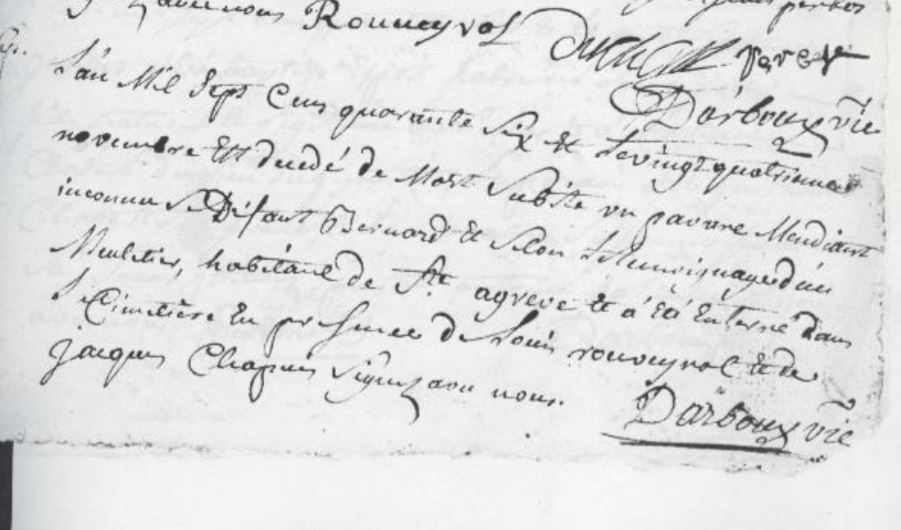 avec nous Rouveyrol
Darboux vic
L'an Mil Sept Cens quarante Six et le vingt quatrieme
novembre Est decedé de Mort Subite un pauvre Mendiant
inconnu se Disant Bernard et selon le temoignage d'un
Meuletier, habitant de St agreve et á eté Enterré dans
le Cimetiere En presence de Louis rouveyrol et de
jacques Chapuis signez avec nous.
Darboux vic